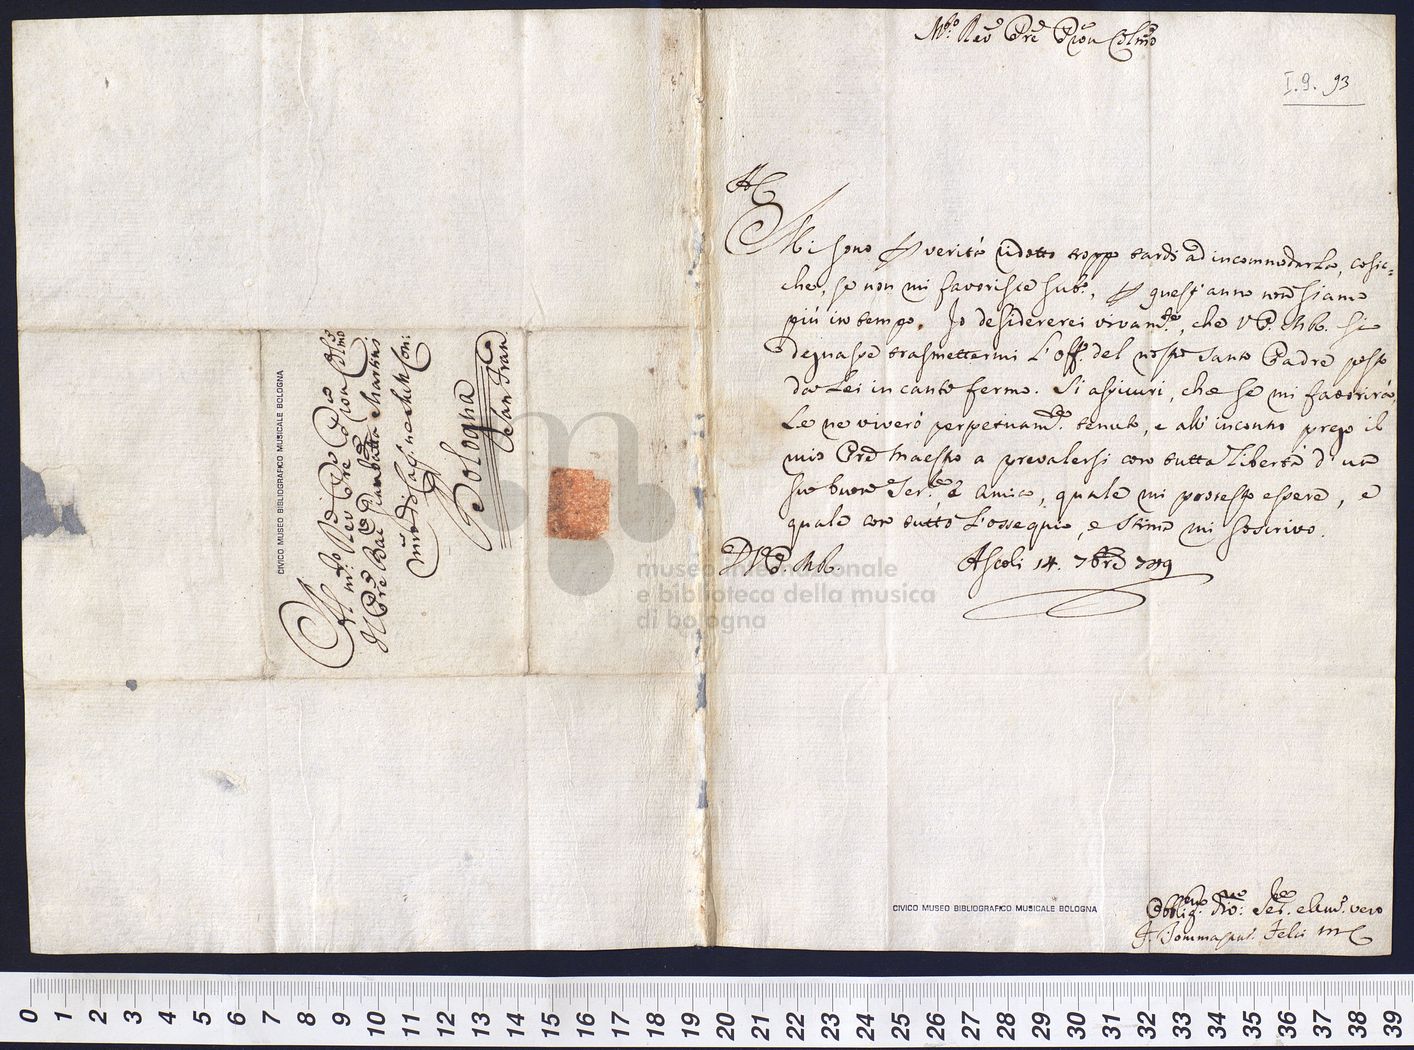 Al M.to Rev.do P.re P.ron Col.mo
Il P.re Bac. Giambatta Martini
Min: di Capella de Min: Con:
Bologna
San Fran.
CIVICO MUSEO BIBLIOGRAFICO MUSICALE BOLOGNA
M.to Rev.o P.re P.ron Col.mo
I.9. 93
Mi sono p verità ridotto troppo tardo ad incommodarla, cosic=
che, se non mi favorisce sub.o, p quest'anno non siamo
più in tempo. Io desidererei vivam.te, che V.P. M.R. si
degnasse trasmettermi l'off.o del nostro Santo Padre posto
da Lei in canto fermo. Si assicuri, che se mi favorirà,
Le ne viverò perpetuam.te tenuto, e all'incontro prego il
mio P.re Maestro a prevalersi con tutta libertà d'un
suo buon Ser.re e Amico, quale mi protesto essere, e
quale con tutto l'ossequio, e stima mi soscrivo.
D V.P. M.R.
Ascoli 14. 7bre 749
museo internazionale
e biblioteca della musica
di bologna
CIVICO MUSEO BIBLIOGRAFICO MUSICALE BOLOGNA
Obblig.mo Ser.re vero
F. Tommaso Felci M C
0 1 2 3 4 5 6 7 8 9 10 11 12 13 14 15 16 17 18 19 20 21 22 23 24 25 26 27 28 29 30 31 32 33 34 35 36 37 38 39